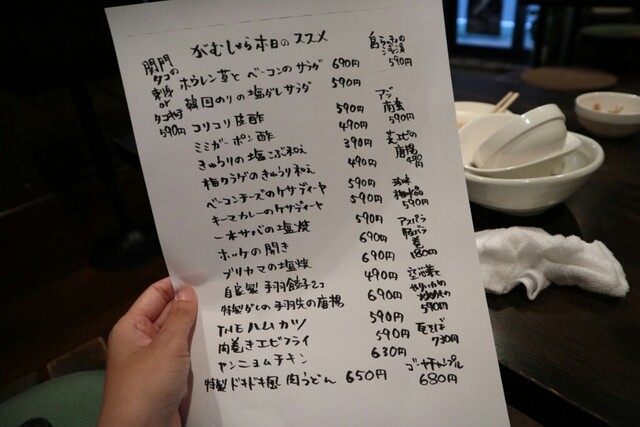 がむしゃら本日のススメ
関門
タコの
刺身
or
タコキムチ
590円
ホウレン草とベーコンのサラダ 690円
韓国のりの塩ダレサラダ 590円
コリコリ皮酢 590円
ミミガーポン酢 490円
きゅうりの塩こぶ和え 390円
梅クラゲのきゅうり和え 490円
ベーコンチーズのケサディーヤ 590円
キーマカレーのケサディーヤ 590円
一本サバの塩焼 590円
ホッケの開き 690円
ブリカマの塩焼 690円
自家製手羽餃子2コ 490円
特製ダレの手羽先の唐揚 690円
THEハムカツ 590円
肉巻きエビフライ 590円
ヤンニョムチキン 630円
特製ドキドキ風肉うどん 650円
島らっきょの
590円
アジ
南蛮
590円
芝エビの
唐揚
490円
珍味
梅水晶
590円
アスパラ
豚バラ
巻
180円
空芯菜と
やりいかの
590円
瓦そば
730円
ゴーヤチャンプル
680円